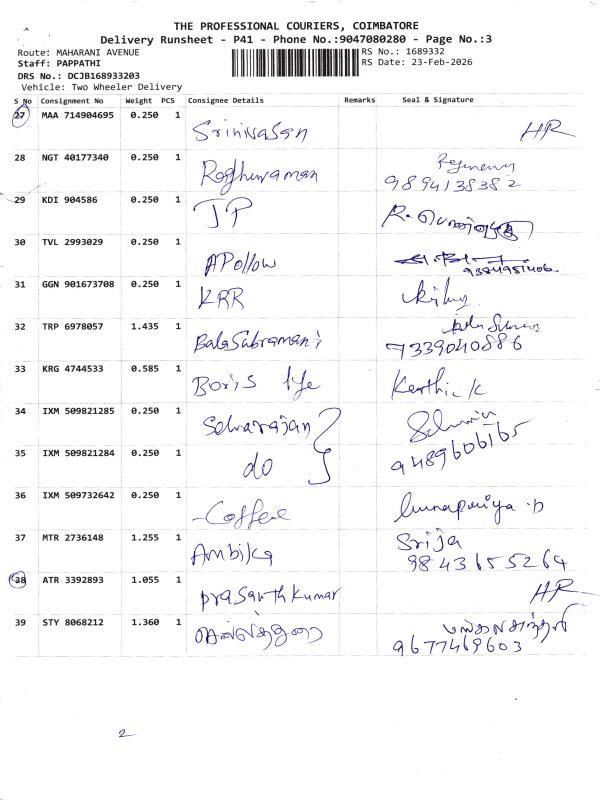 THE PROFESSIONAL COURIERS, COIMBATORE
Delivery Runsheet - P41 - Phone No.:9047080280 - Page No.:3
Route: MAHARANI AVENUE RS No.: 1689332
Staff: PAPPATHI RS Date: 23-Feb-2026
DRS No.: DCJB168933203
Vehicle: Two Wheeler Delivery
S No Consignment No Weight PCS Consignee Details Remarks Seal & Signature
27 MAA 714904695 0.250 1 Srinivasan HR
28 NGT 40177340 0.250 1 Raghuraman
9894138382
29 KDI 904586 0.250 1 JP R.
30 TVL 2993029 0.250 1 Apollow
9384951406
31 GGN 901673708 0.250 1 KRR
32 TRP 6978057 1.435 1 BalaSubramani
7339040886
33 KRG 4744533 0.585 1 Boris life Karthick
34 IXM 509821285 0.250 1 Selvarajan
9489606165
35 IXM 509821284 0.250 1 do
36 IXM 509732642 0.250 1 Coffee
37 MTR 2736148 1.255 1 Ambika Srija
9843655264
38 ATR 3392893 1.055 1 prasanth kumar HR
39 STY 8068212 1.360 1
9677469603
2